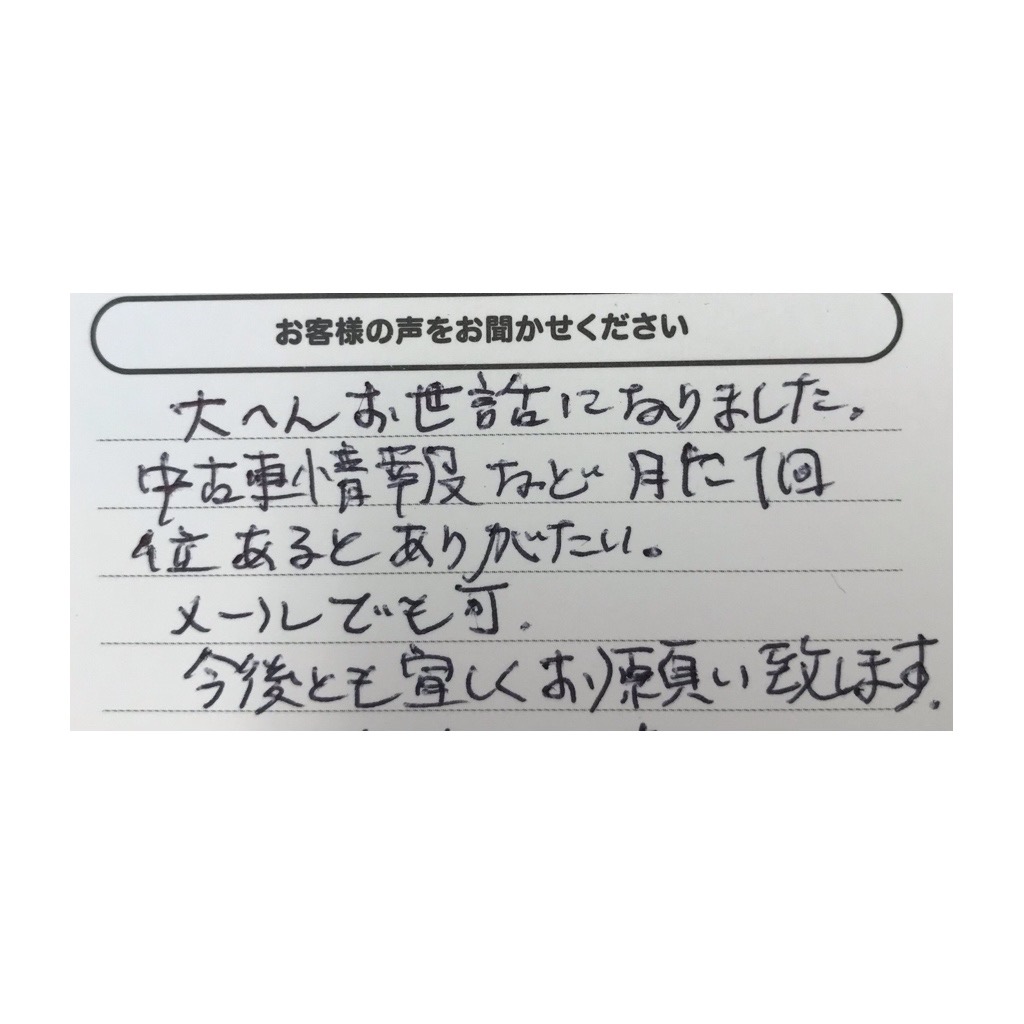 お客様の声をお聞かせください
大へんお世話になりました。
中古車情報など月に1回
位あるとありがたい。
メールでも可.
今後とも宜しくお願い致します.